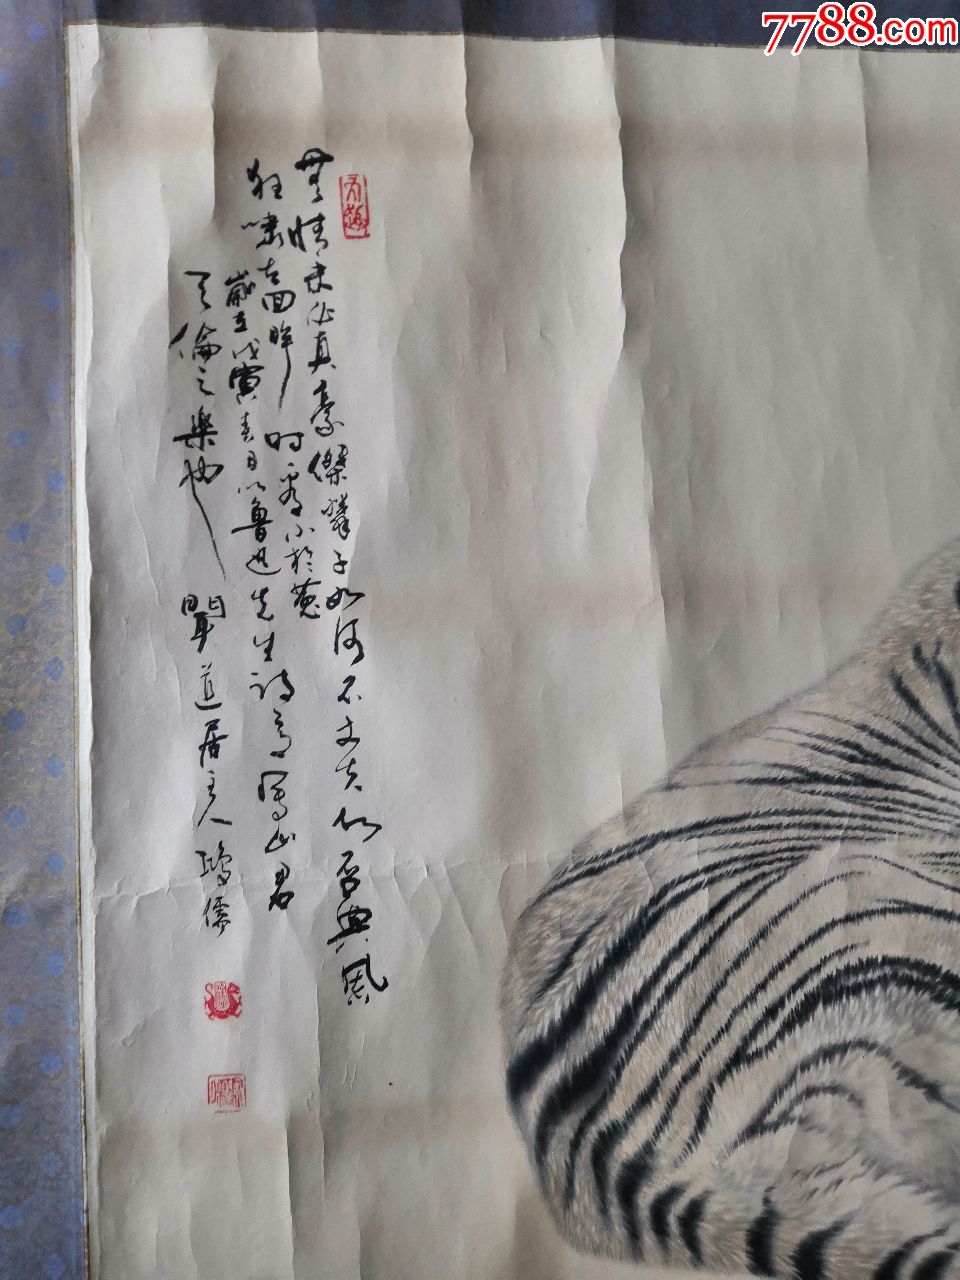 7788.com
無情未必真豪傑憐子如何不丈夫知否興風
狂嘯者回眸時看小於菟
歲在戊寅春月以魯迅先生詩意寫山君
天倫之樂也 聞道居主人鴻儒